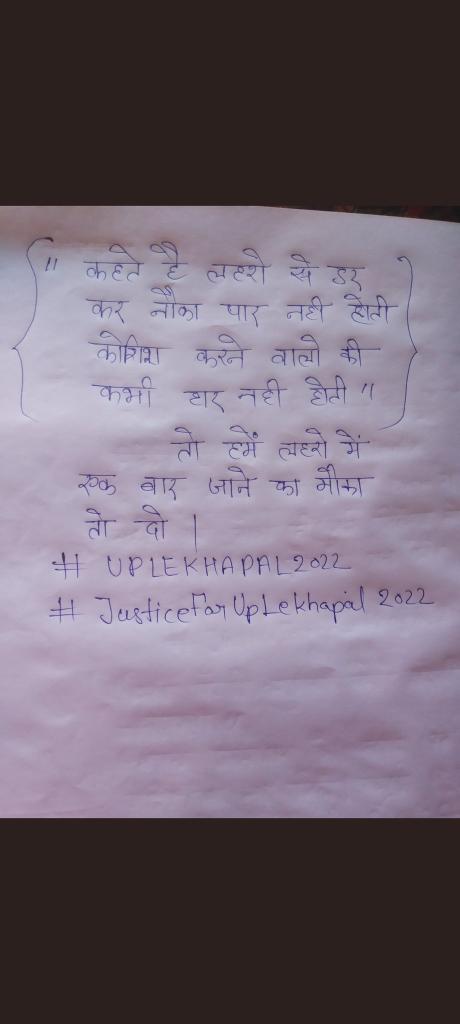 " कहते है लहरो से डर
कर नौका पार नही होती
कोशिश करने वालो की
कभी हार नही होती "
तो हमें लहरो में
एक बार जाने का मौका
तो दो |
# UPLEKHAPAL2022
# JusticeForUpLekhapal 2022